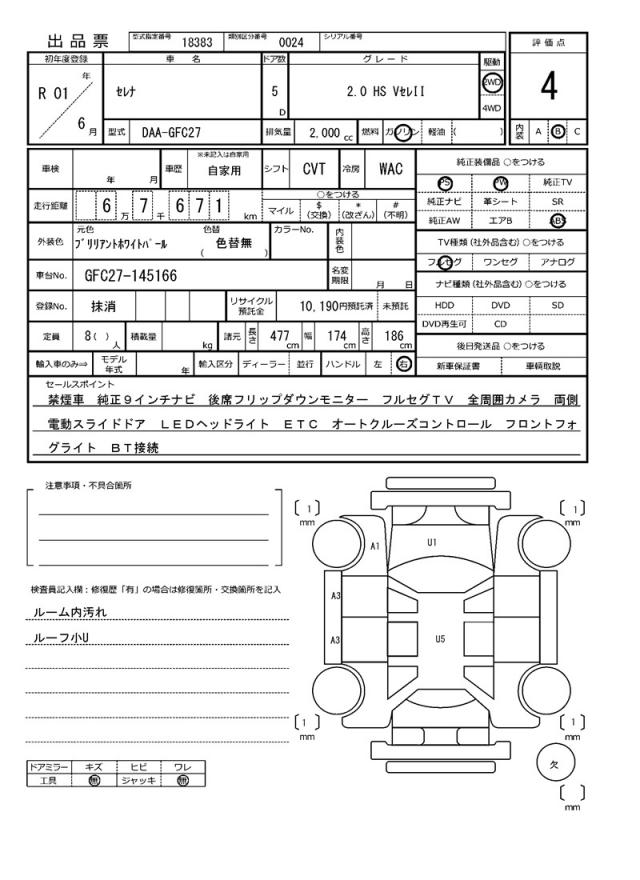 出品票 型式指定番号 18383 類別区分番号 0024 シリアル番号
初年度登録 車名 ドア数 グレード 駆動 評価点
R 01 年 6 月 セレナ 5 D 2.0 HS VセレII 2WD 4WD 4
型式 DAA-GFC27 排気量 2,000 cc 燃料 ガソリン 軽油 ( ) 内装 A B C
車検 年 月 車歴 ※未記入は自家用 自家用 シフト CVT 冷房 WAC
走行距離 6 万 7 千 6 7 1 km ○をつける マイル $ (交換) * (改ざん) # (不明)
外装色 元色 ブリリアントホワイトパール 色替 ( 色替無 ) カラーNo. 内装色
車台No. GFC27-145166 名変期限 月 日
登録No. 抹消 リサイクル預託金 10,190円預託済 未預託
定員 8( ) 人 積載量 kg 諸元 長さ 477 cm 幅 174 cm 高さ 186 cm
輸入車のみ⇒ モデル年式 年 輸入区分 ディーラー 並行 ハンドル 左 右
純正装備品 ○をつける
PS PW 純正TV
純正ナビ 革シート SR
純正AW エアB ABS
TV種類(社外品含む) ○をつける
フルセグ ワンセグ アナログ
ナビ種類(社外品含む) ○をつける
HDD DVD SD
DVD再生可 CD
後日発送品 ○をつける
新車保証書 車輌取説
セールスポイント
禁煙車 純正９インチナビ 後席フリップダウンモニター フルセグＴＶ 全周囲カメラ 両側
電動スライドドア ＬＥＤヘッドライト ＥＴＣ オートクルーズコントロール フロントフォ
グライト ＢＴ接続
注意事項・不具合箇所
検査員記入欄：修復歴「有」の場合は修復箇所・交換箇所を記入
ルーム内汚れ
ルーフ小U
ドアミラー キズ ヒビ ワレ
工具 無 ジャッキ 無
[ 1 ] mm
[ 1 ] mm
A1 U1
A3
A3 U5
[ 1 ] mm
[ 1 ] mm
欠
[ ] mm